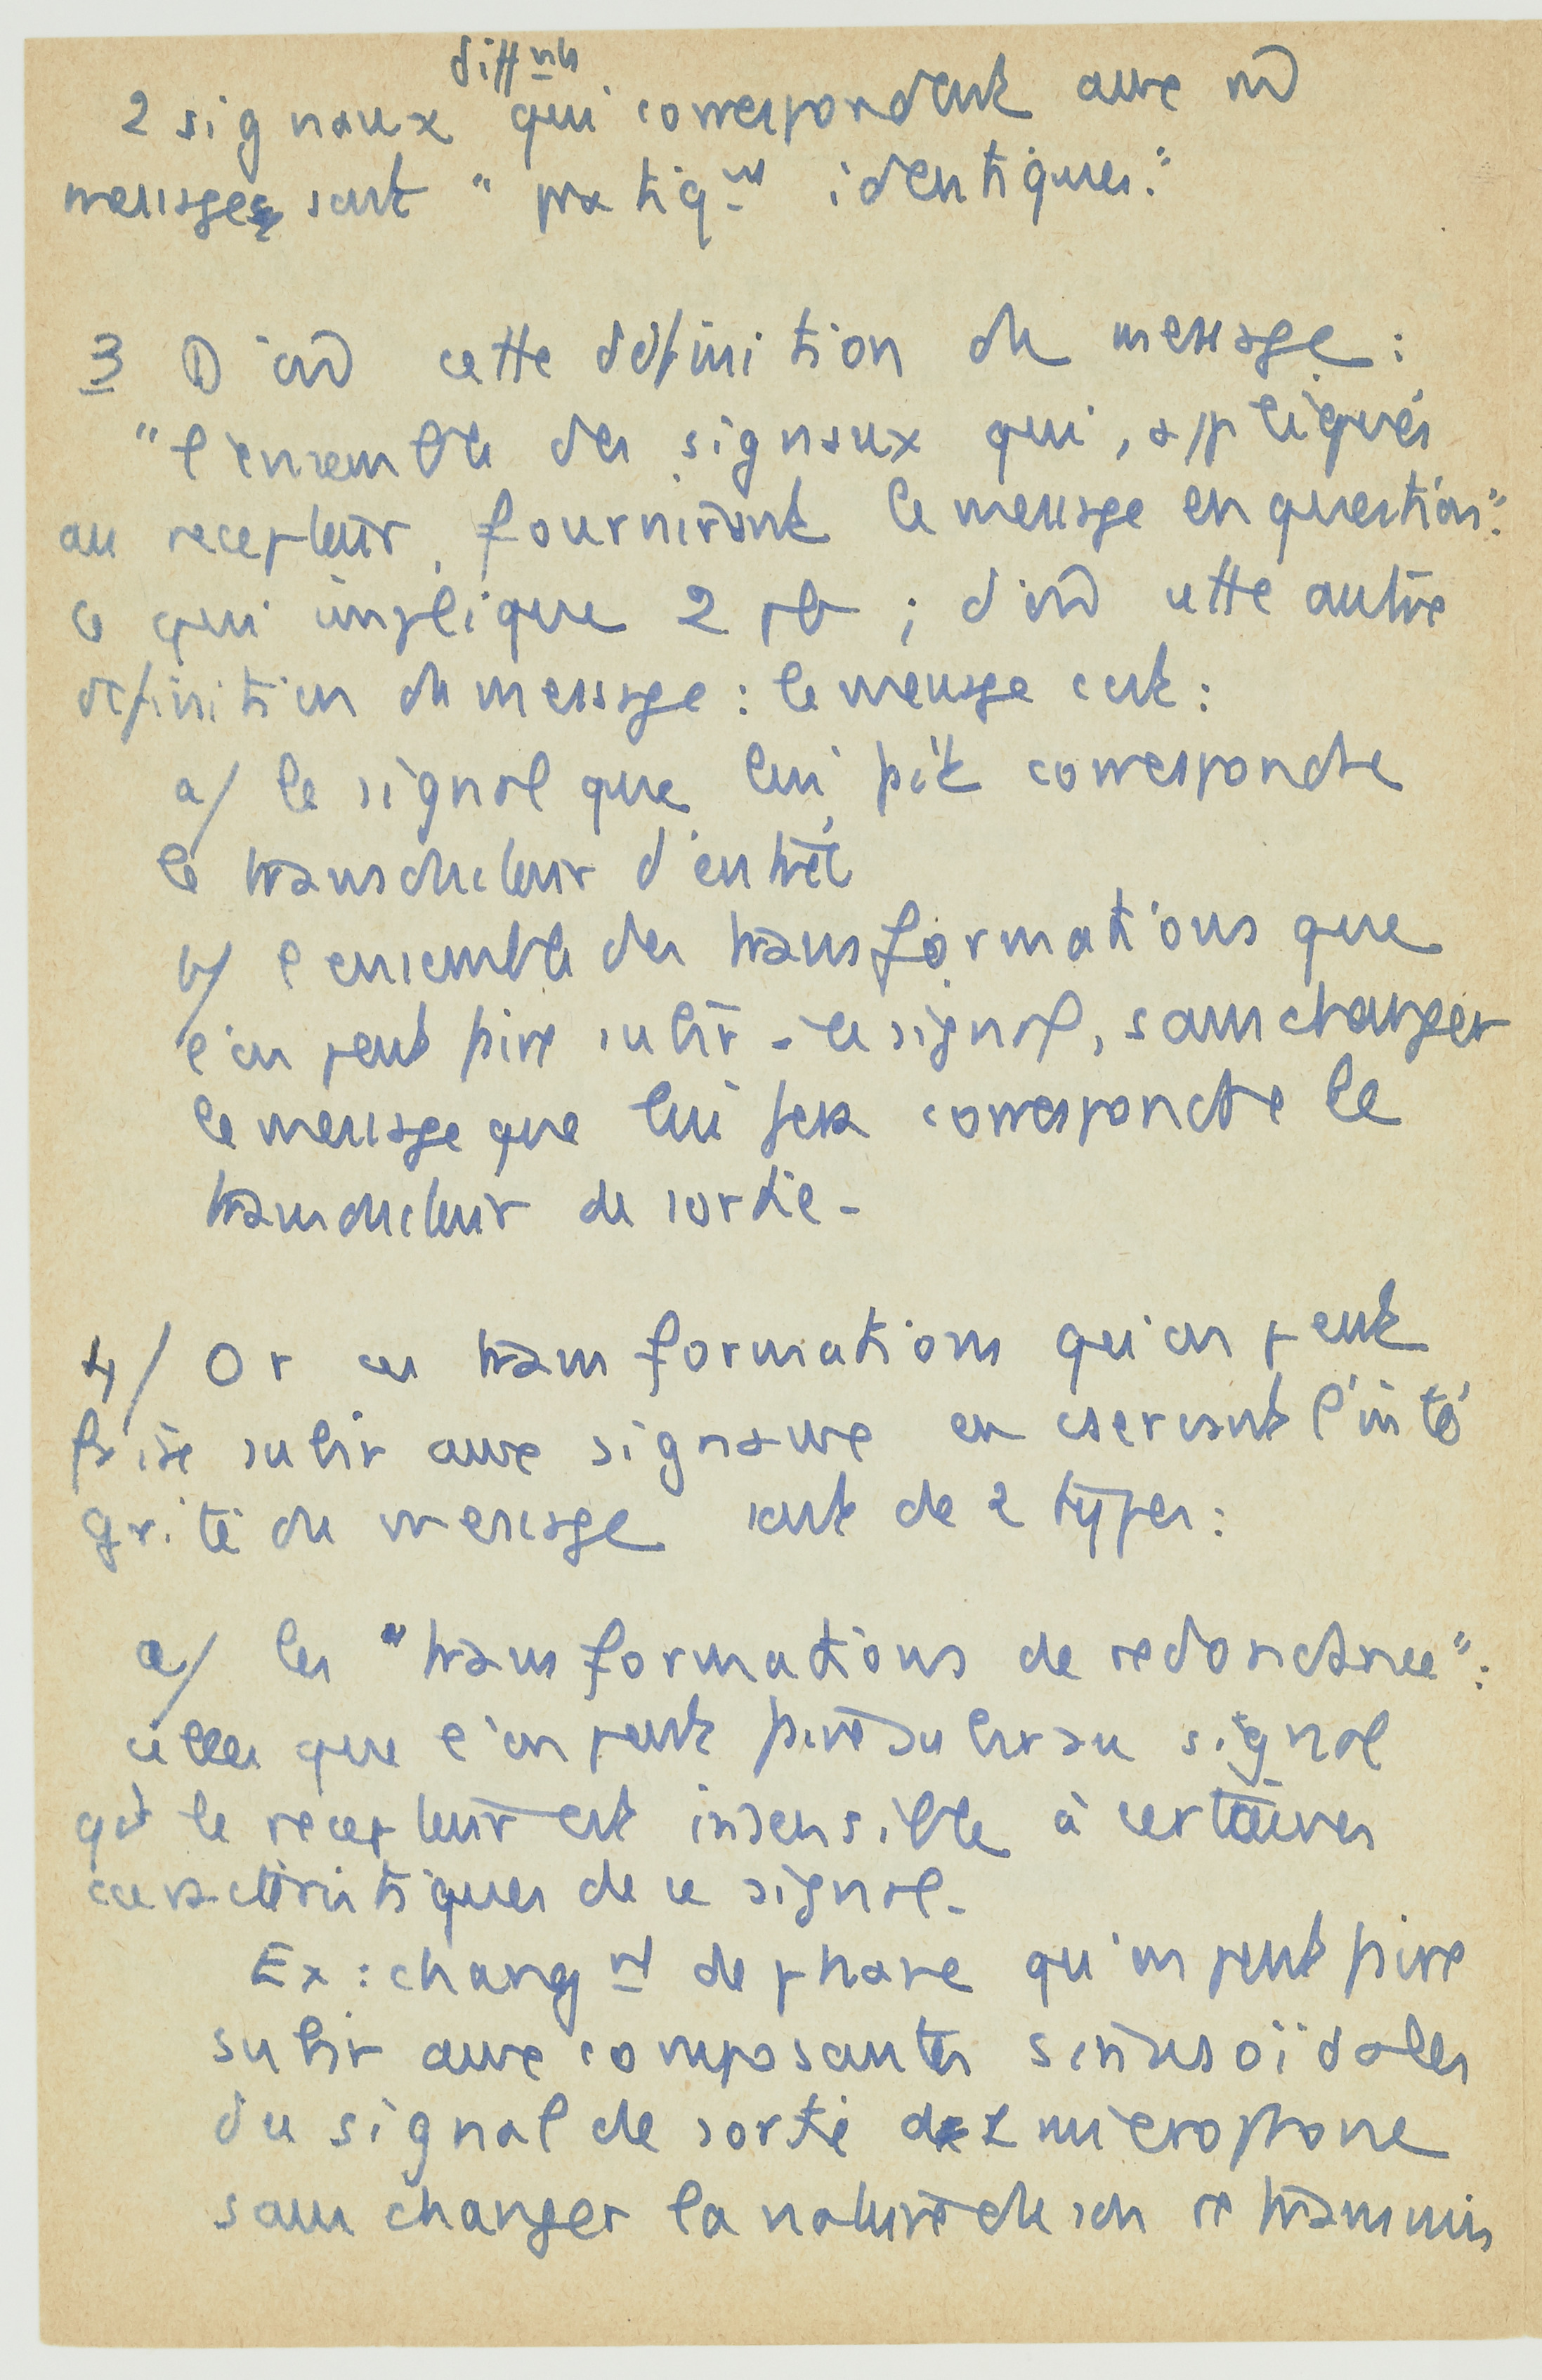 diff nts
2 signaux qui correspondent aux m̂
messages sont "pratiq nt identiques."
3 D'où cette définition du message :
"l'ensemble des signaux qui, appliqués
au recepteur, fourniront le message en question":
ce qui implique 2 pb ; d'où cette autre
définition du message : le message est :
a/ le signal que lui fait correspondre
le transducteur d'entrée
b/ l'ensemble des transformations que
l'on peut faire subir - le signal, sans changer
le message que lui fera correspondre le
transducteur de sortie -
4/ Or ces transformations qu'on peut
faire subir aux signaux en cservant l'inté
grité du message sont de 2 types :
a/ les "transformations de redondance" :
celles que l'on peut faire subir au signal
qd le recepteur est insensible à certaines
caractéristiques de ce signal -
Ex : chang nt de phase qu'on peut faire
subir aux composantes sinusoïdales
du signal de sortie microphone
sans changer la nature du son retransmis